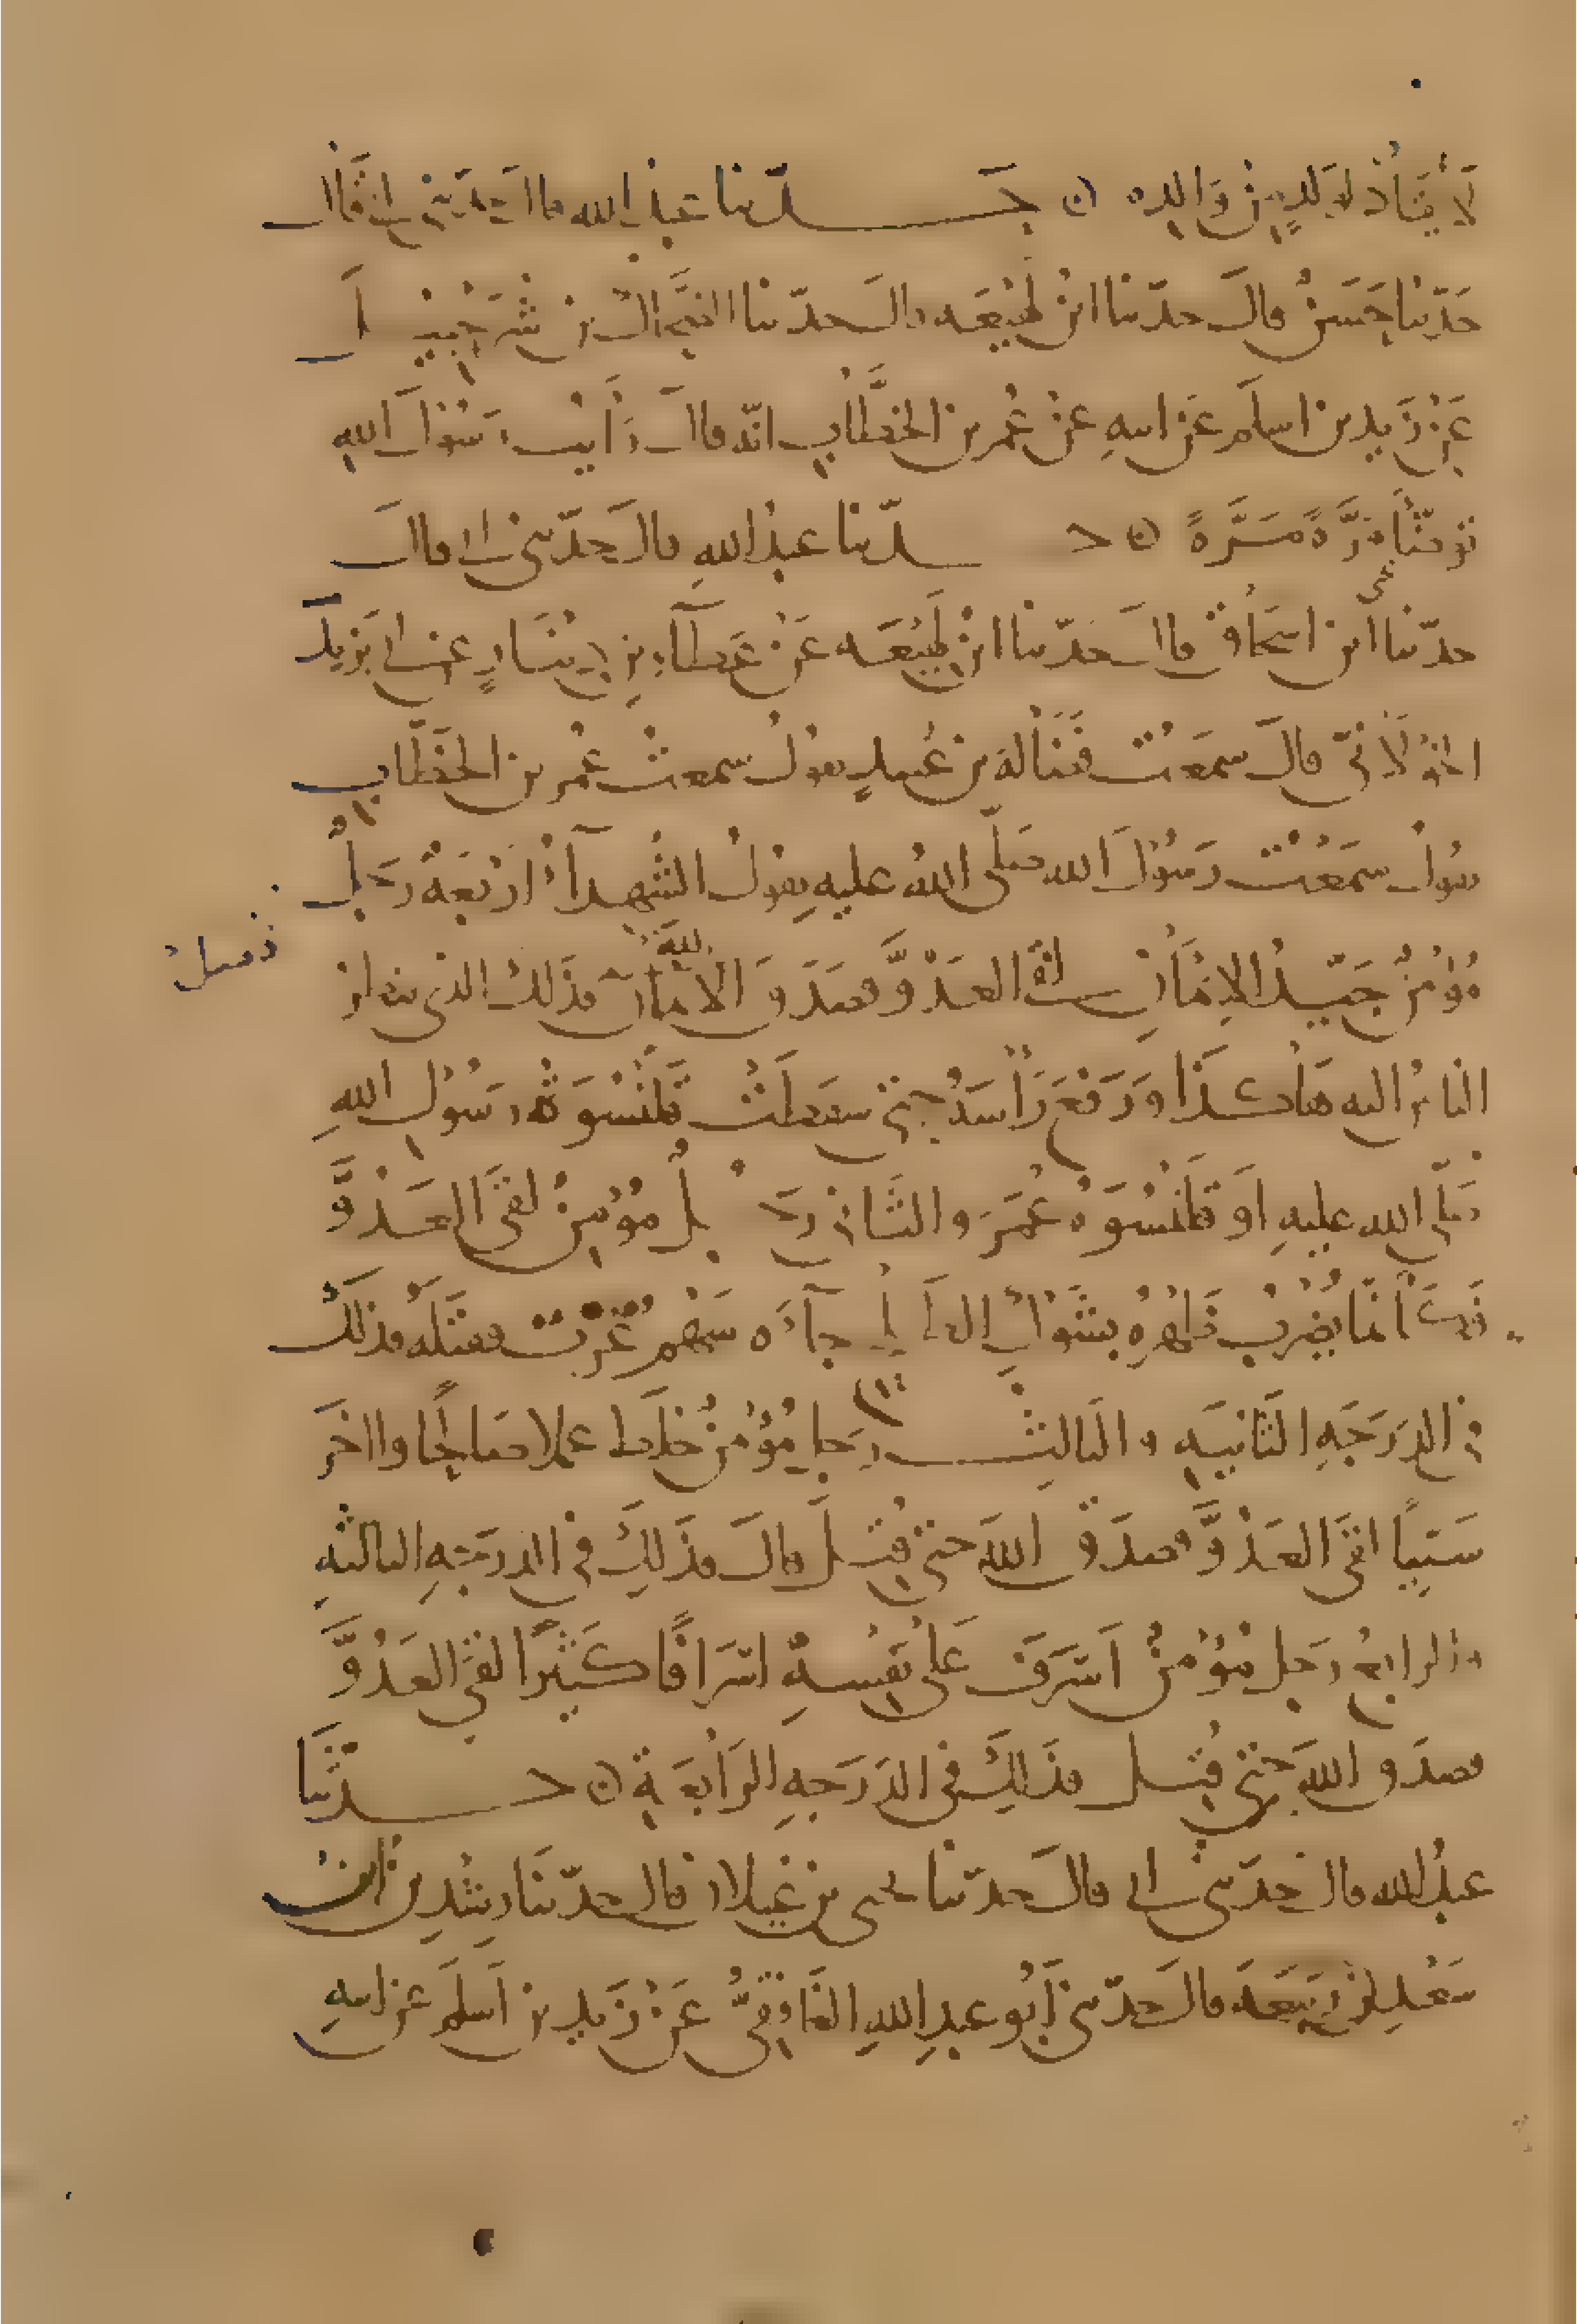 لَا يُقَادُ لِوَلَدٍ مِنْ وَالِدِهِ ۞ حَدّثنا عبد الله قال حَدَّثَني ابي قَالَ
حَدّثنا حَسَنٌ قالَ حدّثنا ابنُ لَهِيْعَه قالَ حدّثنا الضَّحَّاكُ بن شُرَحْبِيْل
عَنْ زَيد بن اسلَم عَن ابيهِ عَنْ عُمر بن الخَطَّابِ انّه قالَ رَأيْت رَسُوْلَ اللهِ
توضَّأ مَرَّةً مَرَّةً ۞ حدّثنا عبدُ اللهِ قالَ حدّثني ابي قالَ
حدّثنا ابن اسحَاق قالَ حَدّثنا ابنُ لَهِيْعَه عَنْ عَطَآءِ بنِ دِيْنَارٍ عن ابي يَزِيدَ
الخَوْلَانيّ قالَ سمعَتْ فَضَالَة بن عُبيدٍ يقولُ سمعتُ عُمر بن الخَطَّابِ
يقولُ سمَعْتُ رَسُوْلَ الله صَلّى اللهُ عليهِ يقولُ الشُّهدآءُ ارْبَعَةٌ رَجُلٌ
مُؤْمِنٌ جَيّدُ الايْمَانِ لقى العَدُوَّ فصَدَقَ اللهَ فذَلكَ الذي
النَاسُ اليه هَاكذَا وَرَفعَ رَأْسَهُ حتى سقطَتْ قَلَنْسُوَةُ رَسُوْلِ اللهِ
صَلّى الله عليهِ اَو قَلَنْسُوَةُ عُمَرَ والثَّاني رَجُلٌ مُؤْمِنٌ لقيَ العَدُوَّ
فَكَأنّمَا يُضْرَبُ ظهْرُهُ بشَوْكِ الطَلْحِ جآءَه سَهْمٌ غَرْبٌ فقتَلَهُ فذَلكَ
في الدَرَجَهِ الثَانيَهِ والثالِثُ رَجلٌ مُؤْمِنٌ خلَطَ عملا صَالحًا واخَرَ
سَيّئًا لقيَ العَدُوَّ فصدَقَ اللهَ حتى قُتِلَ قالَ فذَلِكَ في الدرَجَهِ الثالثهِ
والرابعُ رَجل مُؤْمِنٌ اَسْرَفَ عَلى نَفْسهِ اسْرَافًا كَثيْرًا لقيَ العَدُوَّ
فصدَقَ اللهَ حتى قُتِل فذَلِكَ في الدَرَجهِ الرَابعَةِ ۞ حدّثنَا
عبدُ الله قال حدّثني ابي قالَ حدّثنا يحيى بن غَيلان قال حدّثنَا رِشْدين بن
سَعْد قالَ حدّثني أبُو عبدِ اللهِ الغَافِقيُّ عَنْ زَيدِ بن اَسلَمَ عن ابيهِ